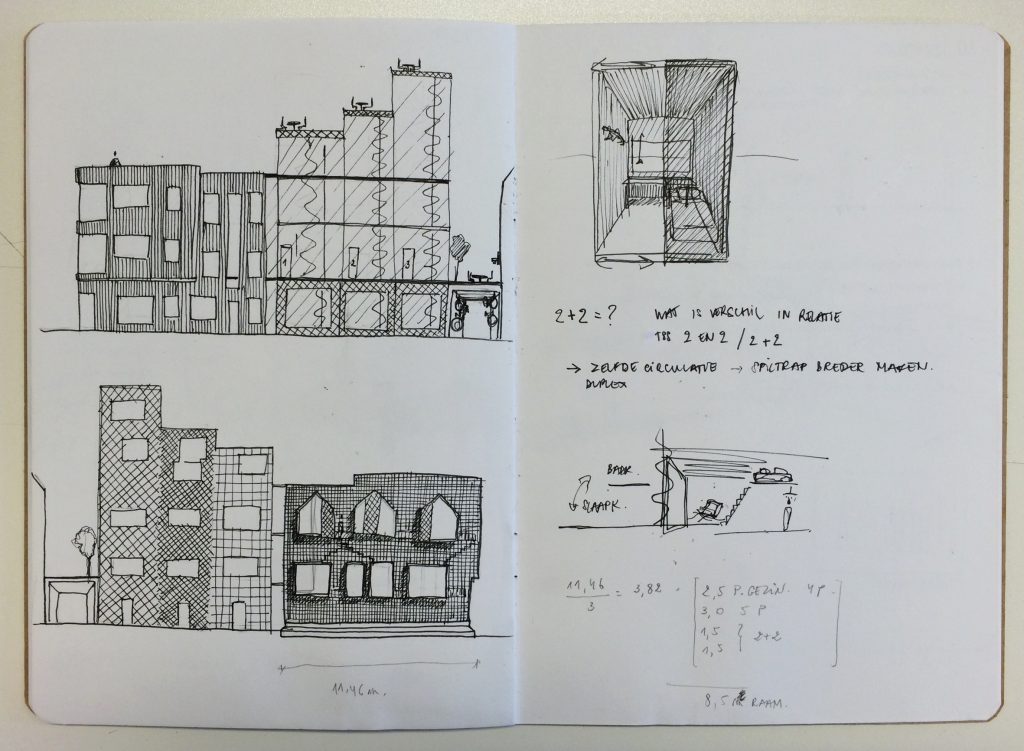 1
2
3
11,46 m.
2+2=? WAT IS VERSCHIL IN RELATIE
TSS 2 EN 2 / 2+2
→ ZELFDE CIRCULATIE → SPILTRAP BREDER MAKEN.
DUPLEX
BADK.
SLAAPK.
11,46 / 3 = 3,82 · 2,5 P. GEZIN. 4P.
3,0 5P
1,5 } 2+2
1,5
8,5 RAAM.